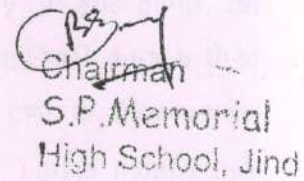 Chairman
S.P.Memorial
High School, Jind